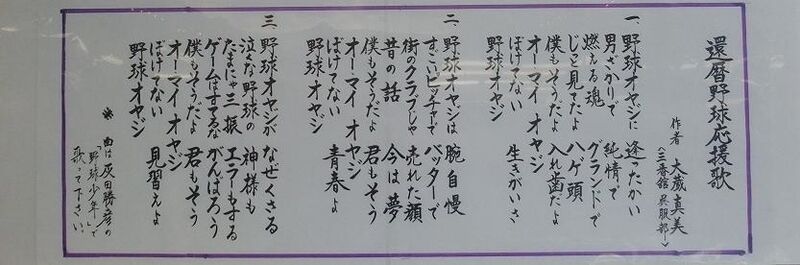 還暦野球応援歌
作者 大蔵真美
(三番館 呉服部)
一、野球オヤジに 逢ったかい
男ざかりで 純情で
燃える魂 グランドで
じっと見てたよ ハゲ頭
僕もそうだよ 入れ歯だよ
オーマイ オヤジ
ぼけてない 生きがいさ
野球オヤジ
二、野球オヤジは 腕自慢
すごいピッチャで バッターで
街のクラブじゃ 売れた顔
昔の話 今は夢
僕もそうだよ 君もそう
オーマイ オヤジ
ぼけてない 青春よ
野球オヤジ
三、野球オヤジが なぜくさる
泣くな野球の 神様も
たまにゃ三振 エラーもする
ゲームはすてるな がんばろう
僕もそうだよ 君もそう
オーマイ オヤジ
ぼけてない 見習えよ
野球オヤジ
※ 曲は灰田勝彦の
「野球少年」で
歌って下さい。